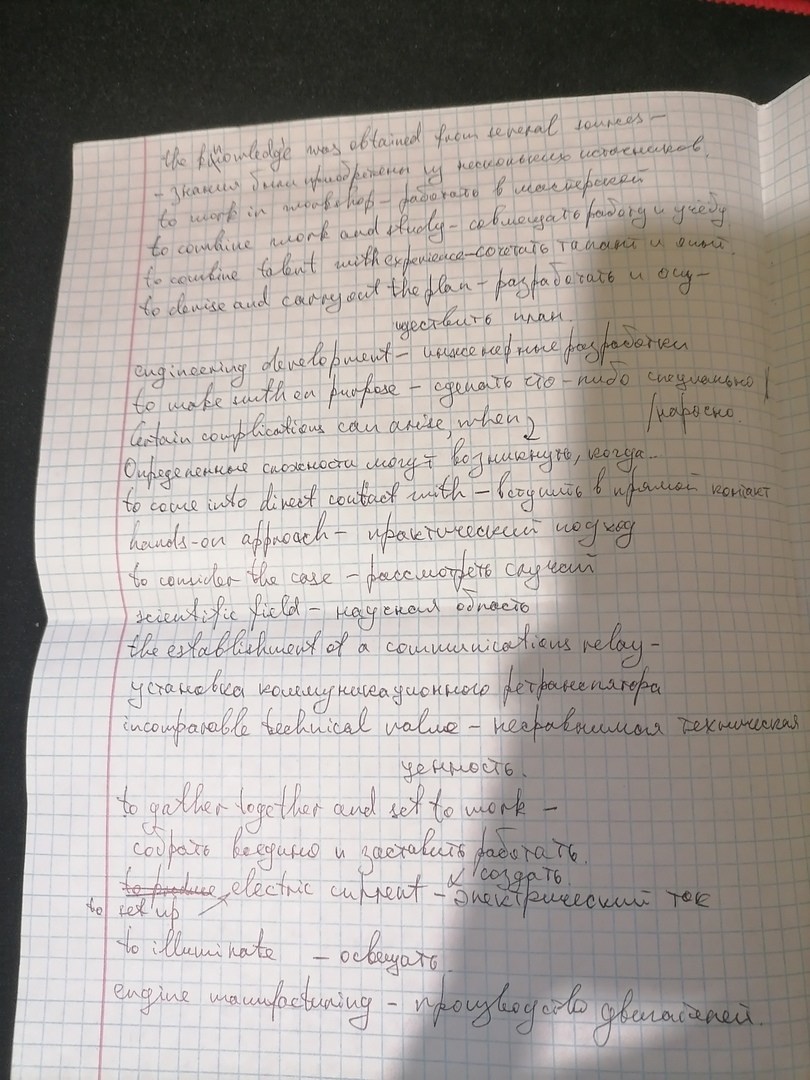 the knowledge was obtained from several sources –
– знания были приобретены из нескольких источников.
to work in workshop – работать в мастерской
to combine work and study – совмещать работу и учёбу
to combine talent with experience – сочетать талант и опыт.
to devise and carry out the plan – разработать и осу-
ществить план.
engineering development – инженерные разработки
to make smth on purpose – сделать что-либо специально /
/нарочно.
Certain complications can arise, when
Определенные сложности могут возникнуть, когда..
to come into direct contact with – вступить в прямой контакт
hands-on approach – практический подход
to consider the case – рассмотреть случай
scientific field – научная область
the establishment of a communications relay –
установка коммуникационного ретранслятора
incomparable technical value – несравнимая техническая
ценность.
to gather together and set to work –
собрать воедино и заставить работать.
создать
to produce electric current – электрический ток
to set up
to illuminate – освещать.
engine manufacturing – производство двигателей.